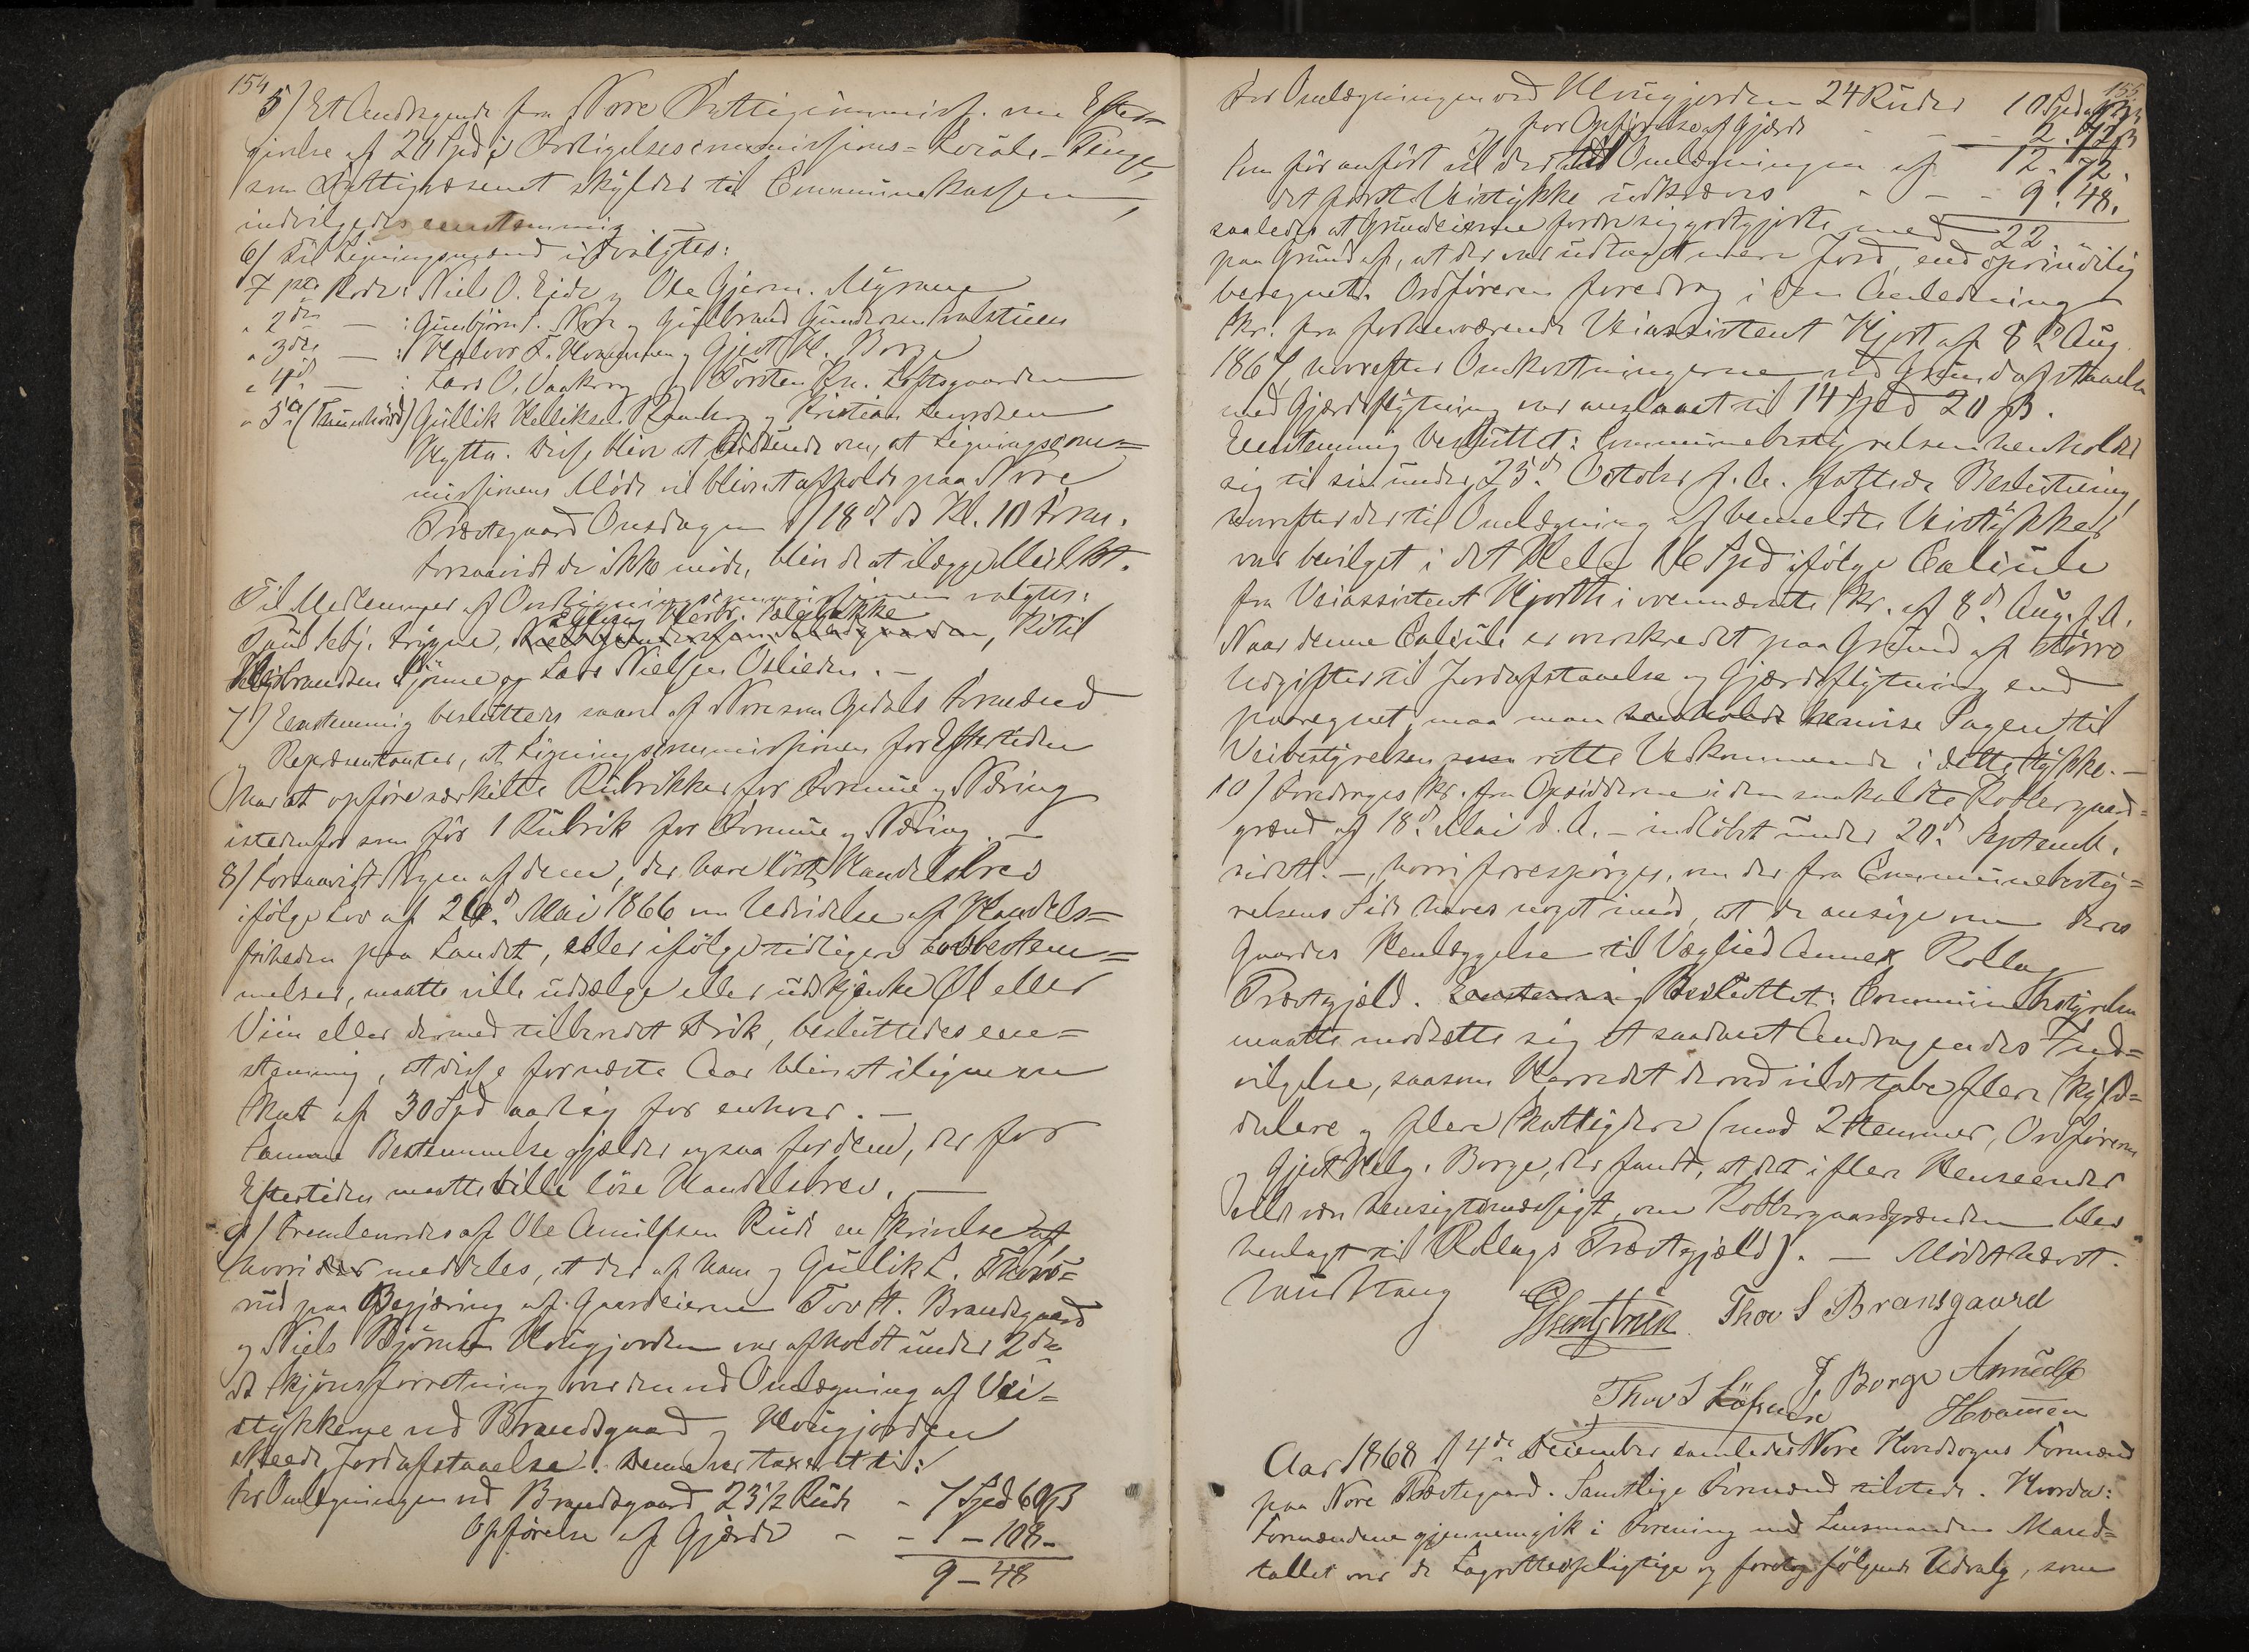 154
5/ Et Andragende fra Nore Fattigcommiss. om Efter=
givelse af 20 Spd i Forligelsescommissions-Locale-Penge,
som Fattigvæsenet skylder til Communekassen,
indvilgedes eenstemmig
6/ Til Ligningsmænd udvalgtes:
7 Rode: Niels O. Eide og Ole Gjerm. Myrane
" 2den — : Gunbjørn og Gulbrand Gundersen
" 3die — : Halvor og Gjert H. Borge
" 4de — : Lars O. Vaakrog og Torsten Kr. Toftsgaarden
" 5te ( ) Gullik Helliksen og Kristian
Hytta. Disse blive at tilkynde om, at Ligningscom=
missionens Møde vil blive at afholde paa Nore
Præstegaard Onsdagen d/ 18de ds Kl. 10 Form.
Forsaavidt de ikke møde, blive de at ilægge Mulkt.
Til Medlemmer af Overligningscommissionen valgtes:
Herbr.
Paul Sebj. Trygne, Kittil
Herbrandsen Sjønne og Lars Nielsen Oslieden. —
7) Eenstemmig besluttedes saavel af Nore som Opdals Formænd
og Repræsentanter, at Ligningscommissionen for Eftertiden
har at opføre særskilte Rubrikker for Formue og Næring
istedenfor som før 1 Rubrik for Formue og Næring. —
8/ Forsaavidt Nogen af dem, der have løst Handelsbrev
ifølge Lov af 26d Mai 1866 om Udvidelse af Handels=
friheden paa Landet, eller ifølge tidligere Lovbestem=
melser, maatte ville udsælge eller udskjenke Øl eller
Viin eller dermed tilberedt Drik, besluttedes een=
stemmig, at disse for næste Aar blive at iligne en
Skat af 30 Spd aarlig for enhver. —
Samme Bestemmelse gjælder ogsaa for dem, der for
Eftertiden maatte ville løse Handelsbrev. —
9/ Fremlevredes af Ole Arnulfsen Rude en Skrivelse af
hvori der meddeles, at der af ham og Gullik L.
rud paa Begjæring af Gaardeierne Tov H. Brandsgaard
og Niels Bjørnsen Hougjorden var afholdt under 2den
ds Skjønsforretning over den ved Omlægning af Vei=
stykkerne ved Brandsgaard og Hougjorden
skeede Jordafstaaelse. Denne var taxeret til:
For Omlægningen ved Brandsgaard 23 1/2 Rude - 7 Spd 60 ß
Opførelse af Gjærde - - 1 - 108 -
9 - 48
155
For Omlægningen ved Hougjorden 24 Ruder 10 Spd
og for Opførelse af Gjærde - - - 2. 72 ß
12. 72.
Som før anført vil der til Omlægningen af
det første Veistykke udkræves - - - 9. 48.
saaledes at Grundeierne fordre sig godtgjorte med 22
paa Grund af, at der var udtaget mere Jord, end oprindelig
beregnet. Ordføreren foredrog i den Anledning
Skr. fra forhenværende Veiassistent Hjort af 8d Aug.
1867, hvorefter Omkostningerne ved Grundafstaaelse
med Gjærdeflytning var anslaaet til 14 Spd 20 ß.
Eenstemmig besluttet: Communebestyrelsen henholder
sig til sin under 25d October f. A. fattede Beslutning,
hvorefter der til Omlægning af bemeldte Veistykker
var bevilget i det Hele Spd ifølge Calcule
fra Veiassistent Hjorth i ovennævnte Skr. af 8d Aug. f. A.
Naar denne Calcule er overskredet paa Grund af større
Udgifter til Jordafstaaelse og Gjærdeflytning end
paaregnet, maa man henvise Sagen til
Veibestyrelsen som rette Vedkommende i dette Stykke. —
10/ Foredroges Skr. fra Opsidderne i den saakaldte Kobbergaard=
grænd af 18d Mai d. A. — indløbet under 20d Septemb.
sidstl. —, hvori forespørges, om der fra Communebesty=
relsens Side haves noget imod, at de ansøge om deres
Gaardes Henlæggelse til Væglied Annex, Rollag
Præstegjæld. Eenstemmig Besluttet: Communebestyrelsen
maatte modsætte sig et saadant Andragendes Ind=
vilgelse, saasom Herredet derved vilde tabe flere Skyld=
dalere og flere Skatteydere (mod 2 Stemmer, Ordføreren
og Gjert Helg. Borge, der fandt, at det i flere Henseender
vilde være hensigtsmæssigt, om Kobbergaardgrænden blev
henlagt til Rollags Præstegjæld). — Mødet hævet.
Thov S Bransgaard
G Borge Arnulf
Thov S
Hvammen
Aar 1868 d/ 4de December samledes Nore Hovedsogns Formænd
paa Nore Præstegaard. Samtlige Formænd tilstede. Hvorda:
Formændene gjennemgik i Forening med Lensmanden Mand=
tallet over de Lagrettespligtige og foretog følgende Udvalg, som